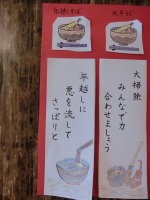 大掃除
みんなで力
合わせましょう
年越しそば
年越しに
悪を流して
さっぱりと